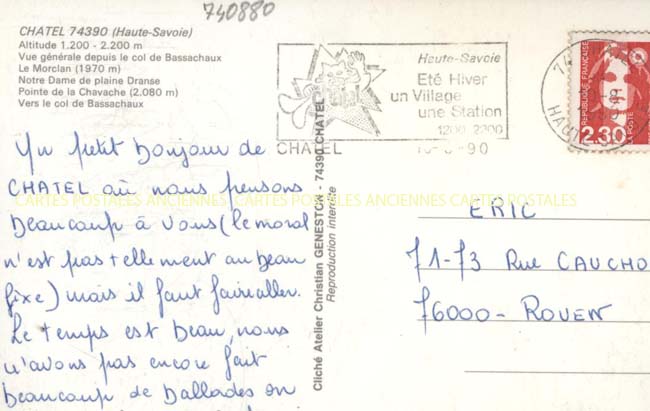 740880
CHATEL 74390 (Haute-Savoie)
Altitude 1.200 - 2.200 m
Vue générale depuis le col de Bassachaux
Le Morclan (1970 m)
Notre Dame de plaine Dranse
Pointe de la Chavache (2.080 m)
Vers le col de Bassachaux
Un petit bonjour de
CHATEL où nous pensons
beaucoup à vous (le moral
n'est pas tellement au beau
fixe) mais il faut faire aller.
Le temps est beau, nous
n'avons pas encore fait
beaucoup de ballades on
Haute-Savoie
Eté Hiver
un Village
une Station
1200 2200
CHATEL
-90
REPUBLIQUE FRANÇAISE
2.30
POSTE
Cliché Atelier Christian GENESTON - 74390 CHATEL
Reproduction interdite
CARTES POSTALES ANCIENNES CARTES POSTALES ANCIENNES CARTES POSTALES
ERIC
71-73 Rue CAUCHO
76000 - ROUEN